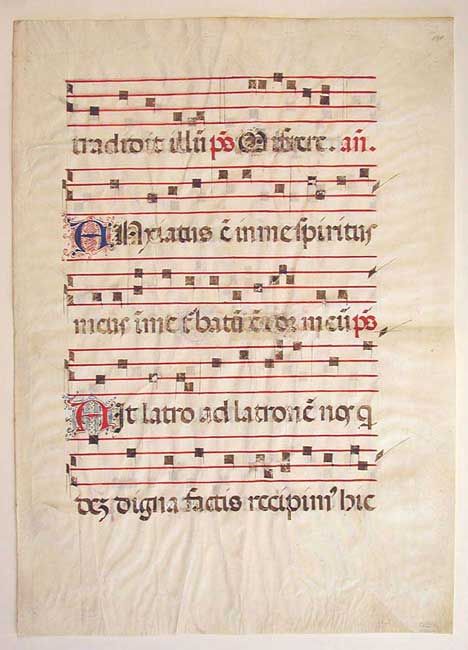 tradidit illū p̄s Miserere. an̄.
Anxiatus ē in me spiritus
meus ī me t̄batū ē cor meū p̄s
Ait latro ad latronē nos q
dez digna factis recipim᾽ hic